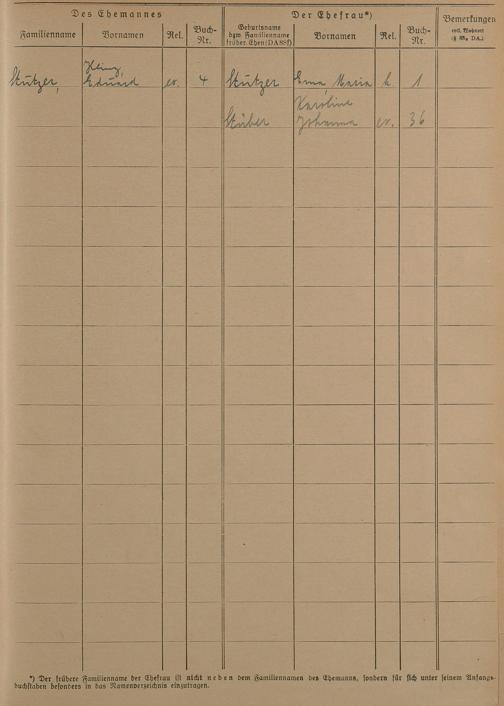 Des Ehemannes
Der Ehefrau*)
Bemerkungen
evtl. Wohnort
Familienname
Vornamen
Rel.
Buch-
Nr.
Geburtsname
bzw. Familienname
früher. Ehen (DA 88f)
Vornamen
Rel.
Buch-
Nr.
Stutzer,
Eduard
ev.
4
Stutzer
Erna Maria
k.
1
Karoline
Stüber
Johanna
ev.
36
*) Der frühere Familienname der Ehefrau ist nicht neben dem Familiennamen des Ehemanns, sondern für sich unter seinem Anfangs-
buchstaben besonders in das Namenverzeichnis einzutragen.